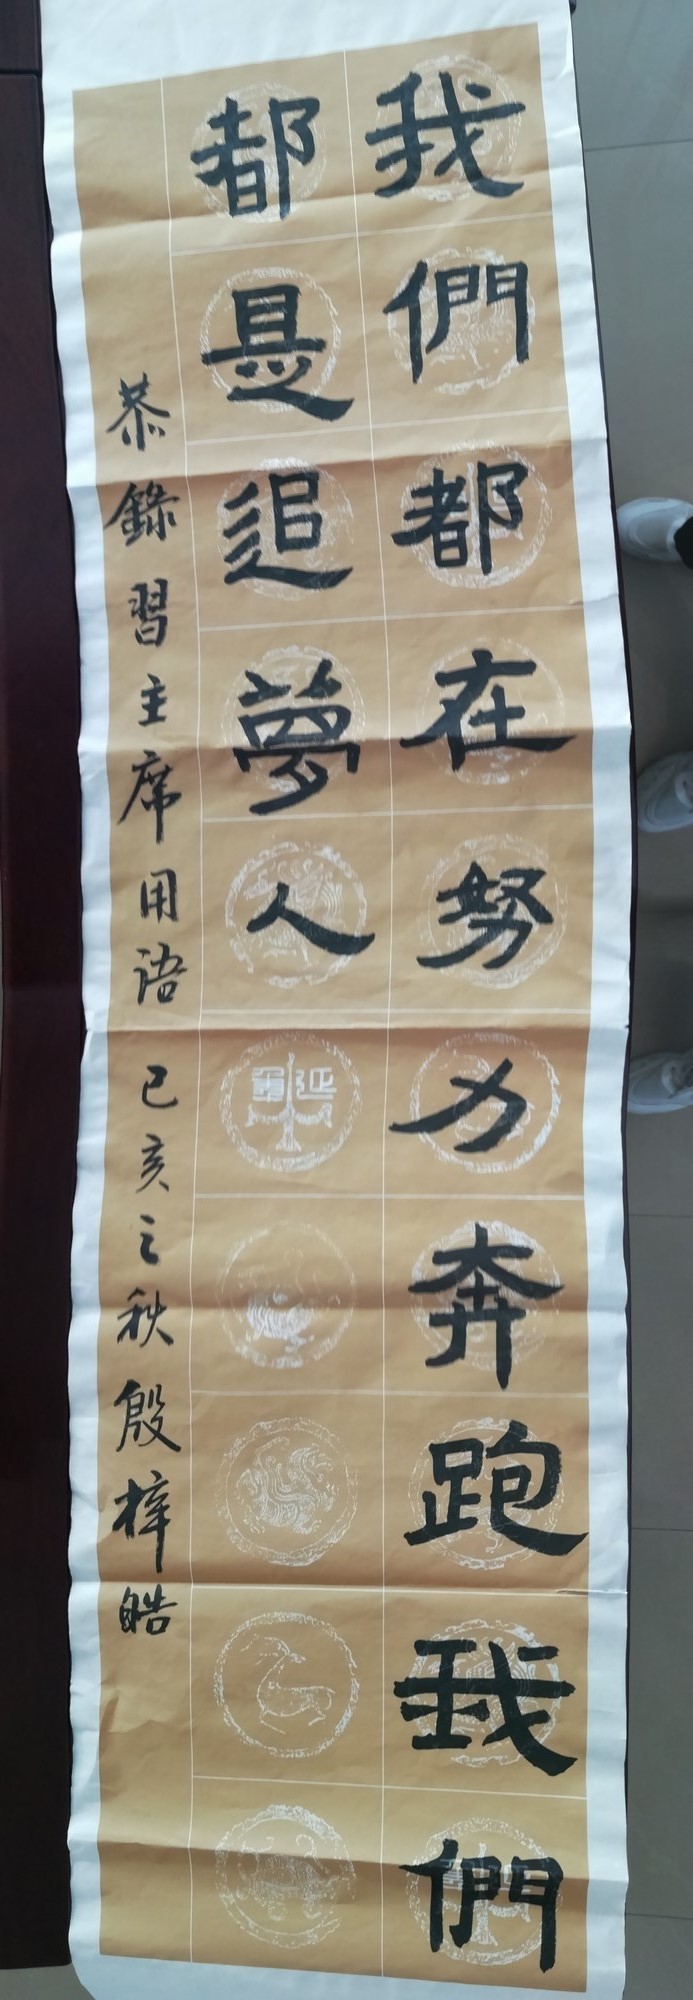 我們都在努力奔跑我們
都是追夢人
恭錄習主席用语 己亥之秋 殷梓皓
延年